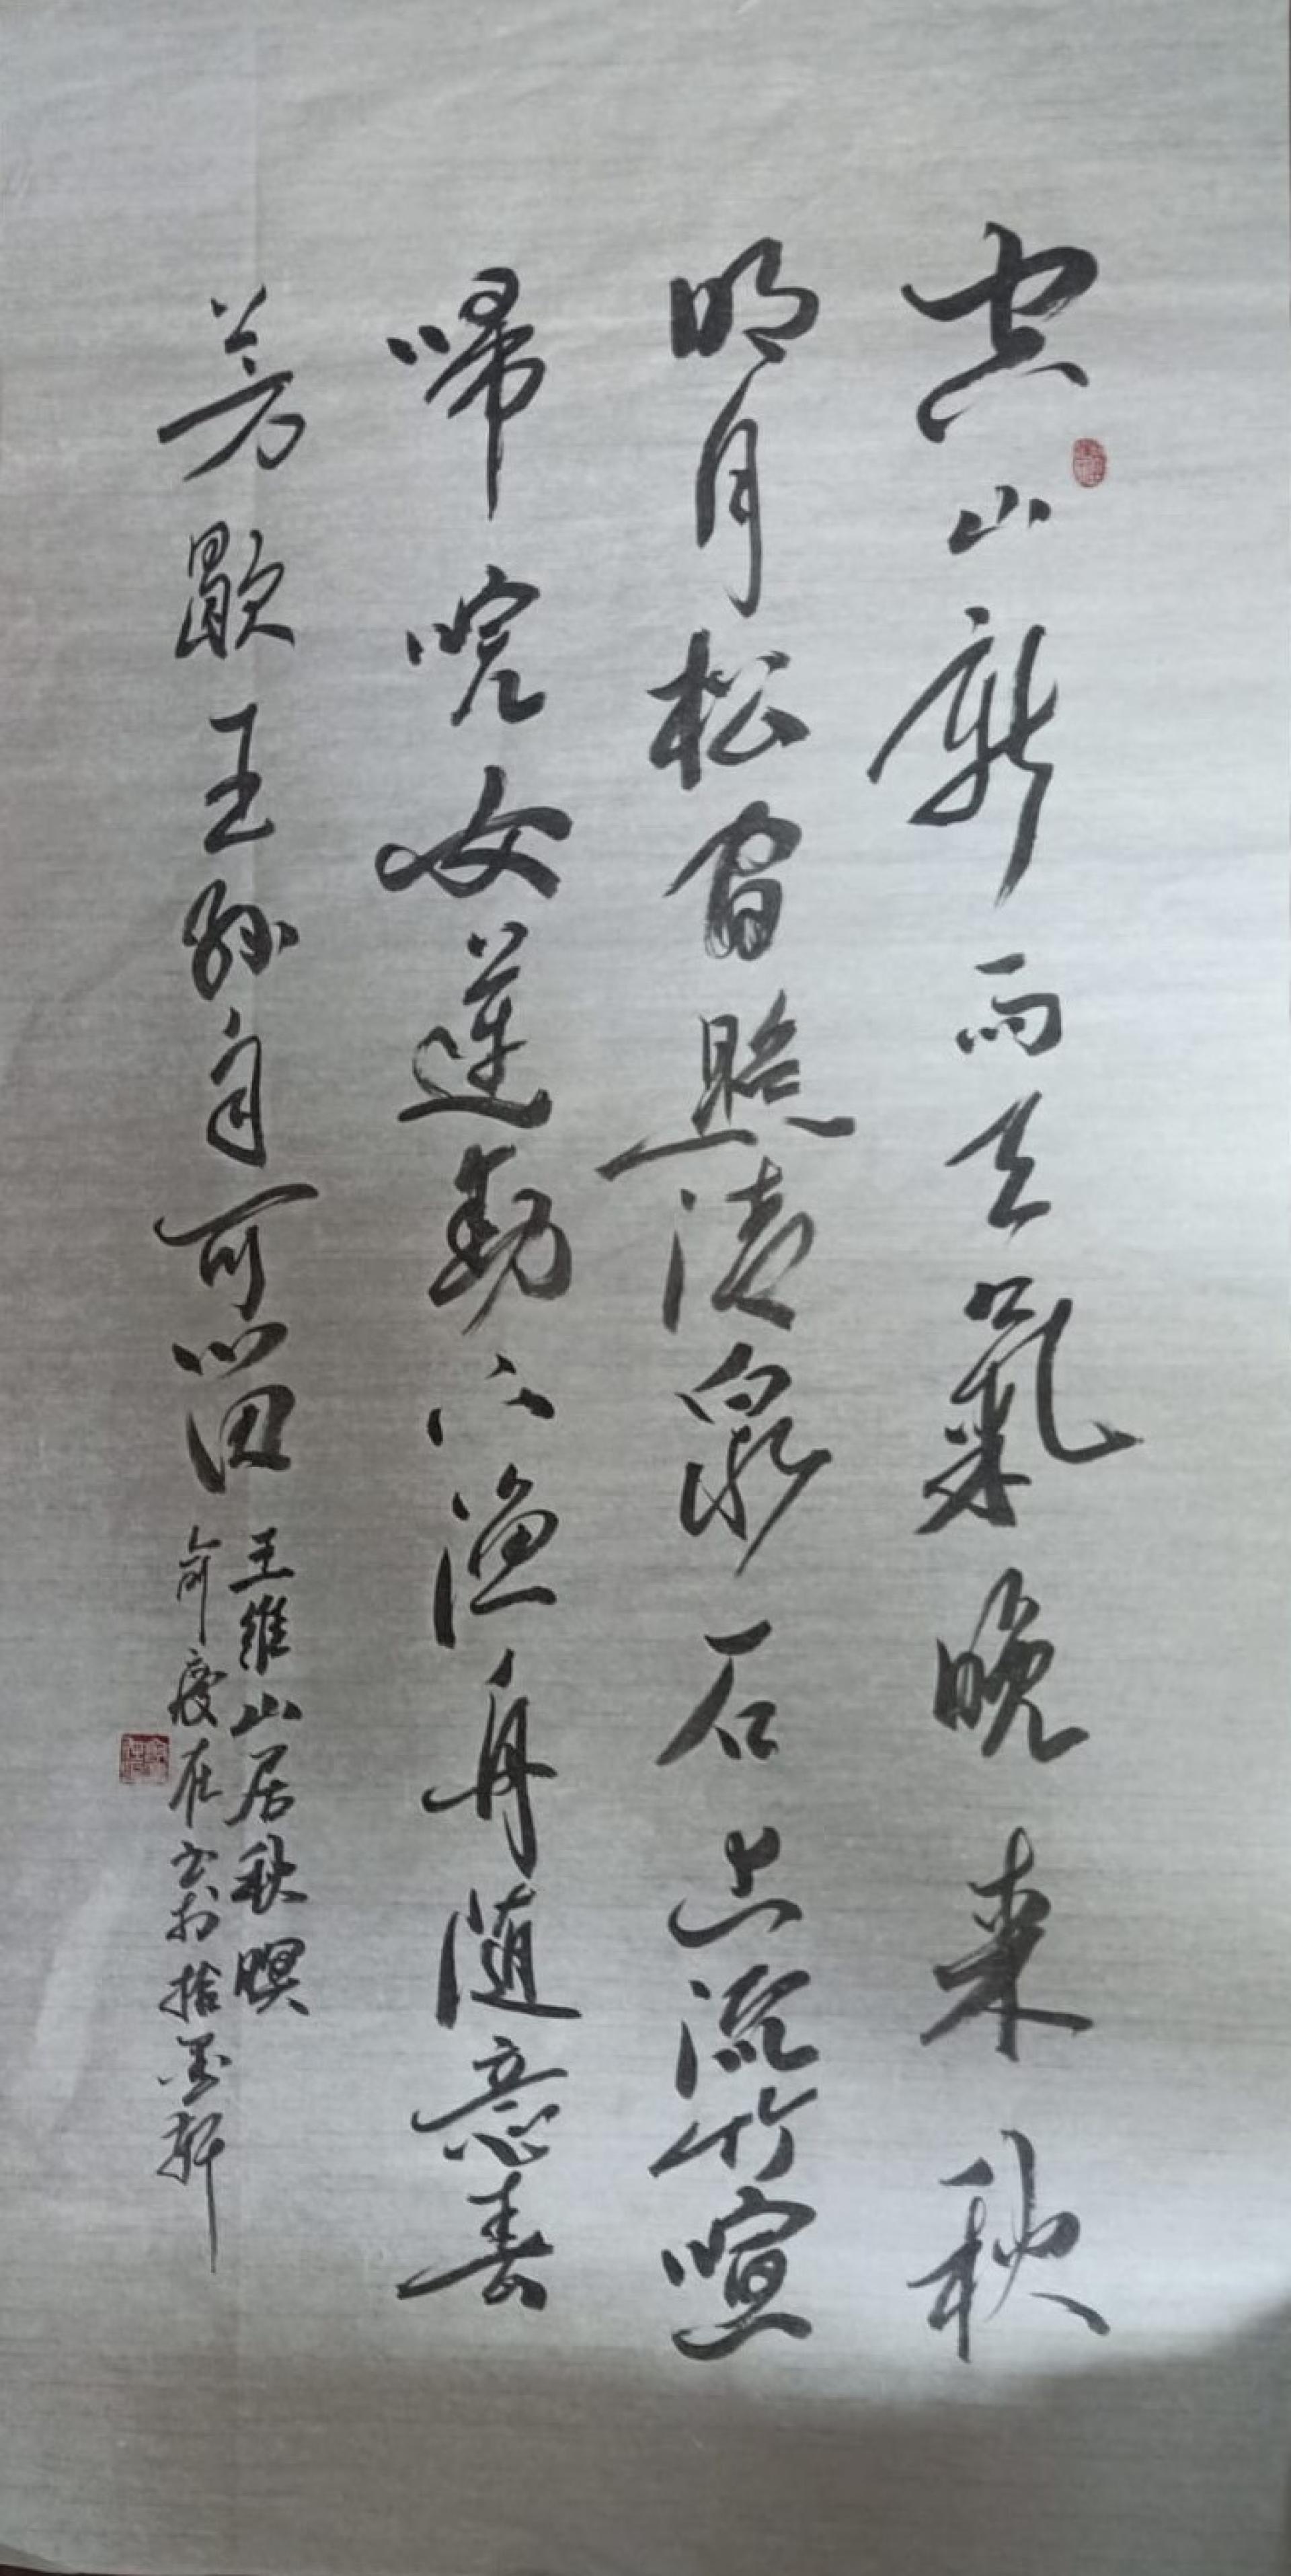 空山新雨天氣晚来秋
明月松間照清泉石上流竹喧
啼浣女蓮動下漁舟随意春
芳歇王孫自可留
王維山居秋暝
俞慶在書於拾墨軒